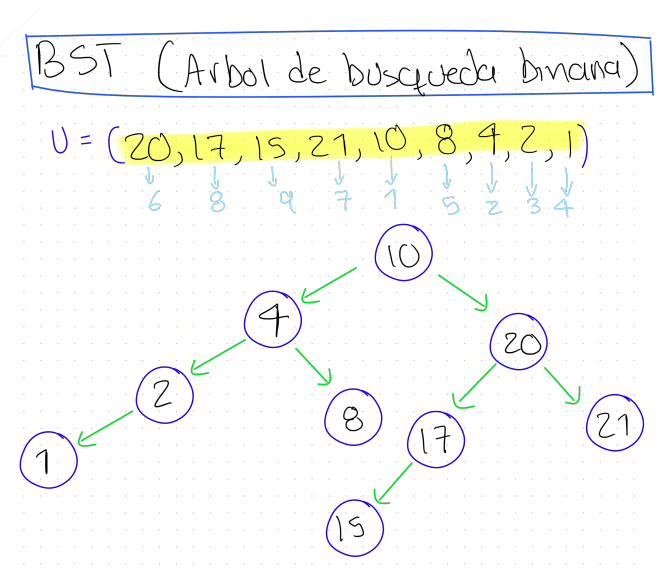 BST (Arbol de busqueda binaria)
U = (20, 17, 15, 21, 10, 8, 4, 2, 1)
6 8 9 7 1 5 2 3 4
10
4
20
2
8
17
21
1
15